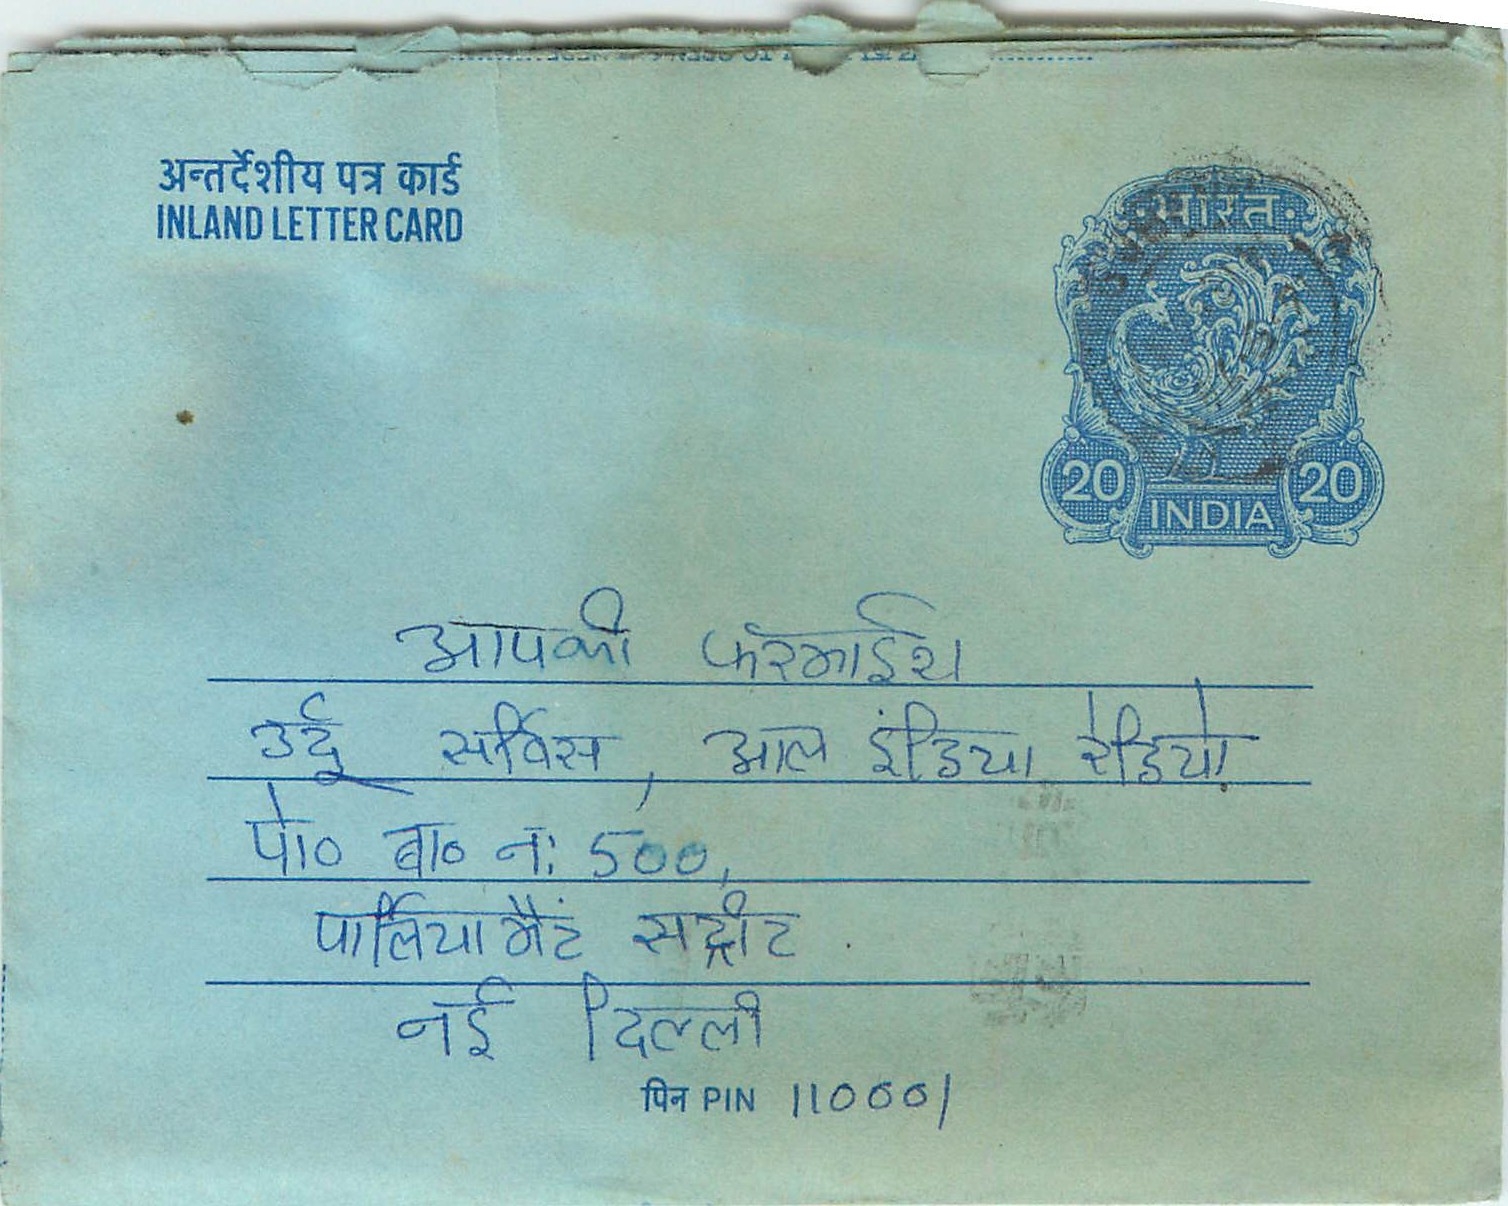 अन्तर्देशीय पत्र कार्ड
INLAND LETTER CARD
भारत
20 20
INDIA
आपकी फरमाईश
उर्दू सर्विस, आल इंडिया रेडियो
पो० बा० न: 500,
पार्लियामैंट सट्रीट
नई दिल्ली
पिन PIN 110001